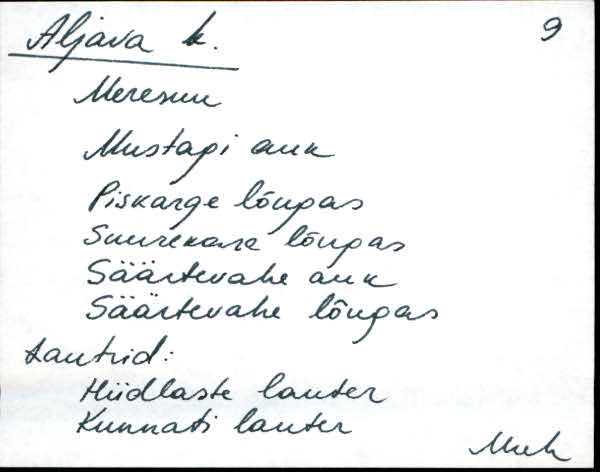 Aljava k. 9
Meresuu
Mustapi auk
Piskarge lõugas
Suurekare lõugas
Säärtevahe auk
Säärtevahe lõugas
Lautrid:
Hiidlaste lauter
Kunnati lauter
Muh